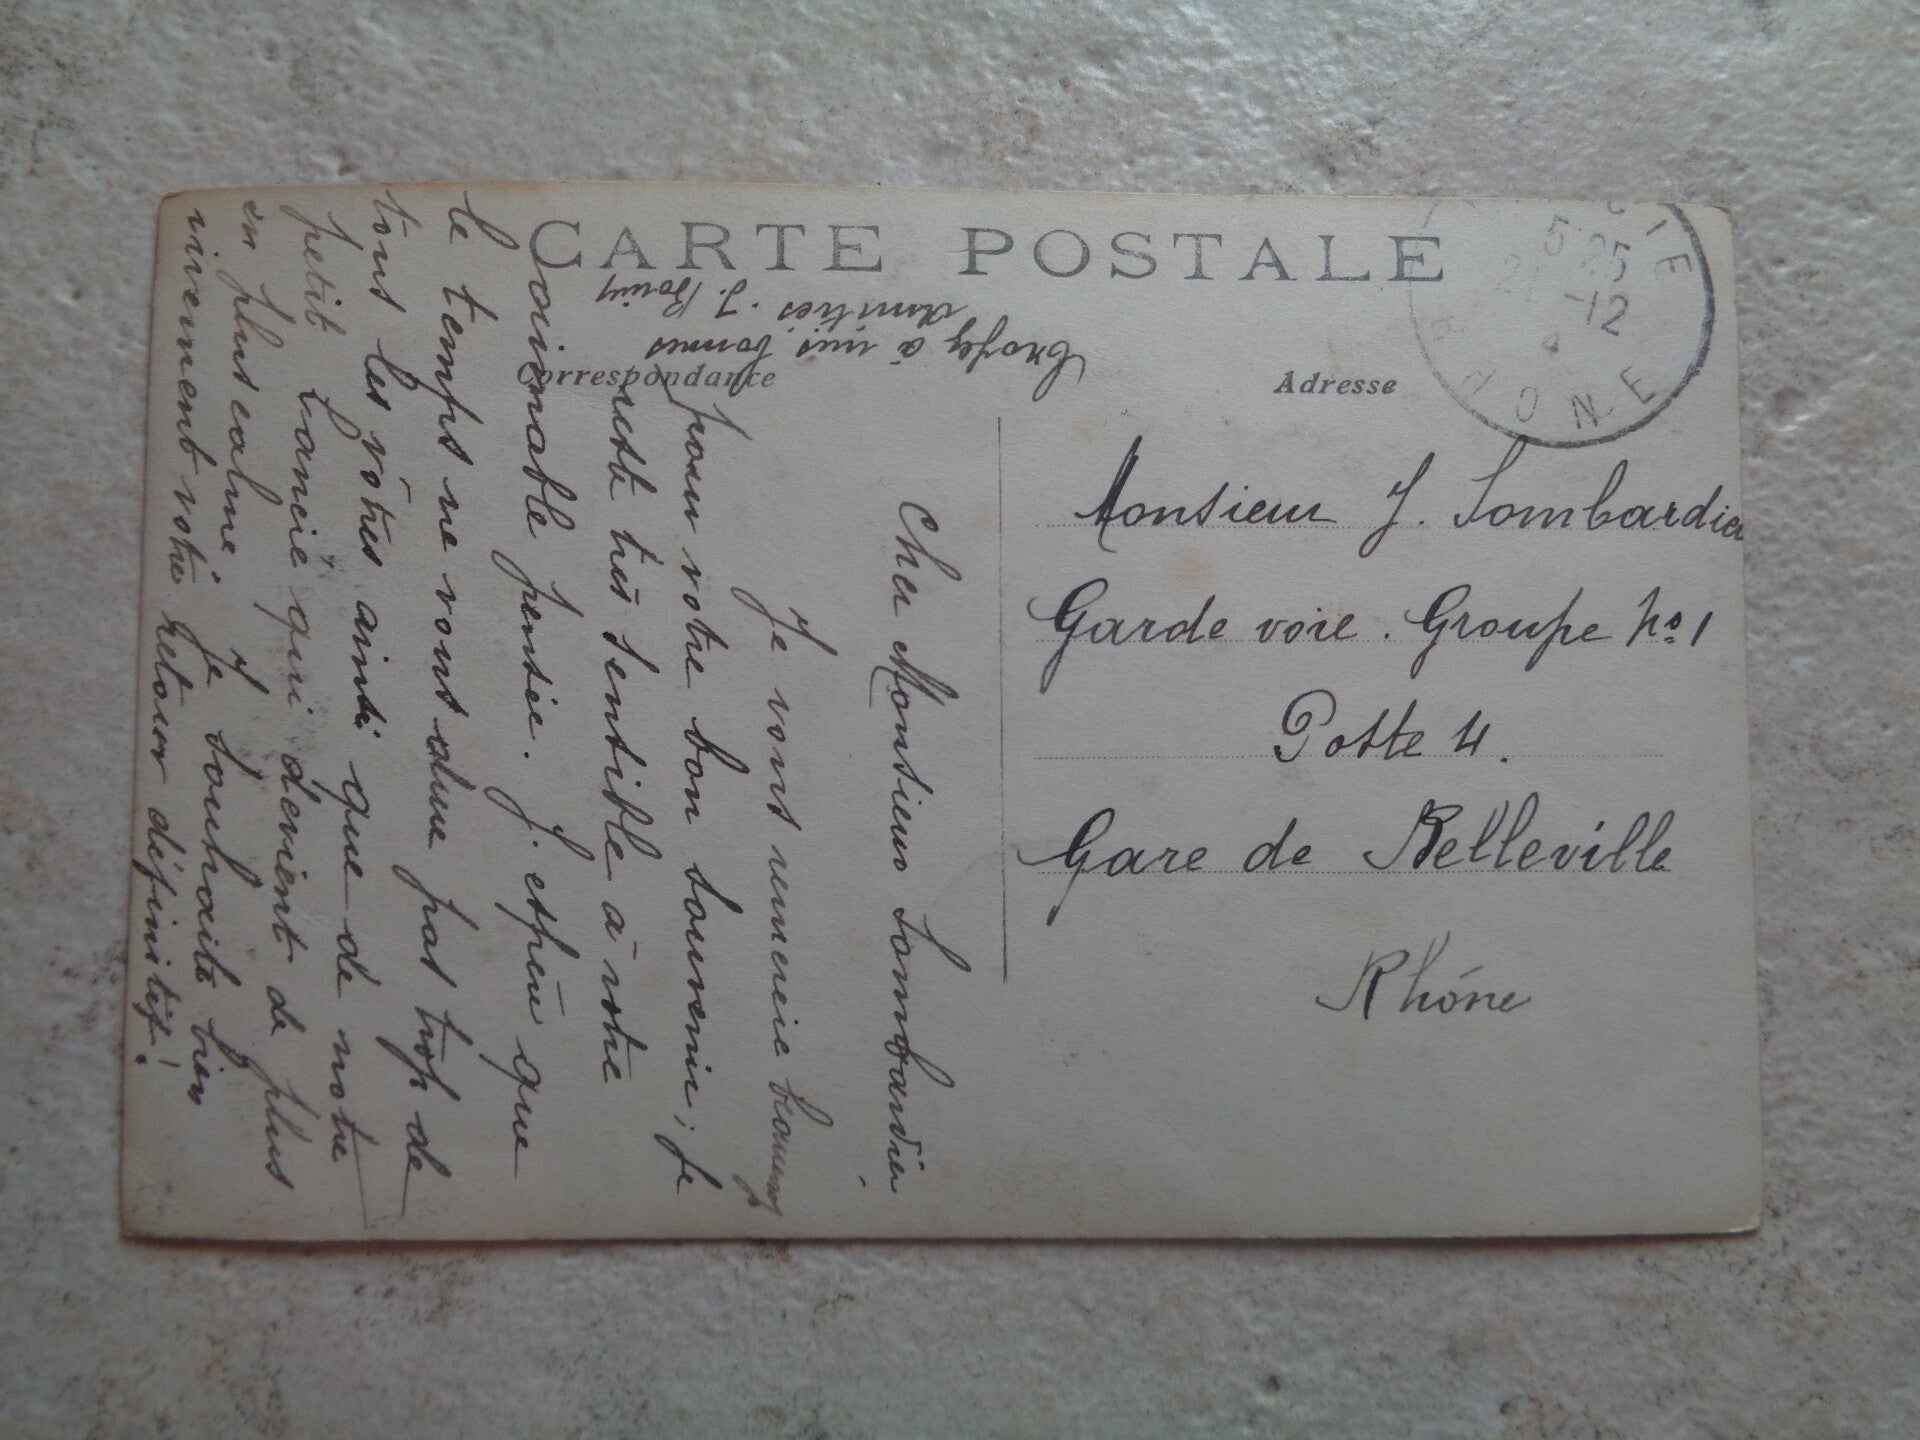 CARTE POSTALE
Correspondance
Adresse
5 25
-12
RHONE
Monsieur J. Lombardier
Garde voie. Groupe No 1
Poste 4.
Gare de Belleville
Rhône
Cher Monsieur Lombardier
Je vous remercie beaucoup
pour votre bon souvenir, je
suis très sensible à votre
aimable pensée. J'espère que
le temps ne vous dure pas trop de
tous les vôtres ainsi que de notre
petit Lancié qui devient de plus
en plus calme. Je souhaite bien
vivement votre retour définitif!
Croyez à mes bonnes
amitiés. J.